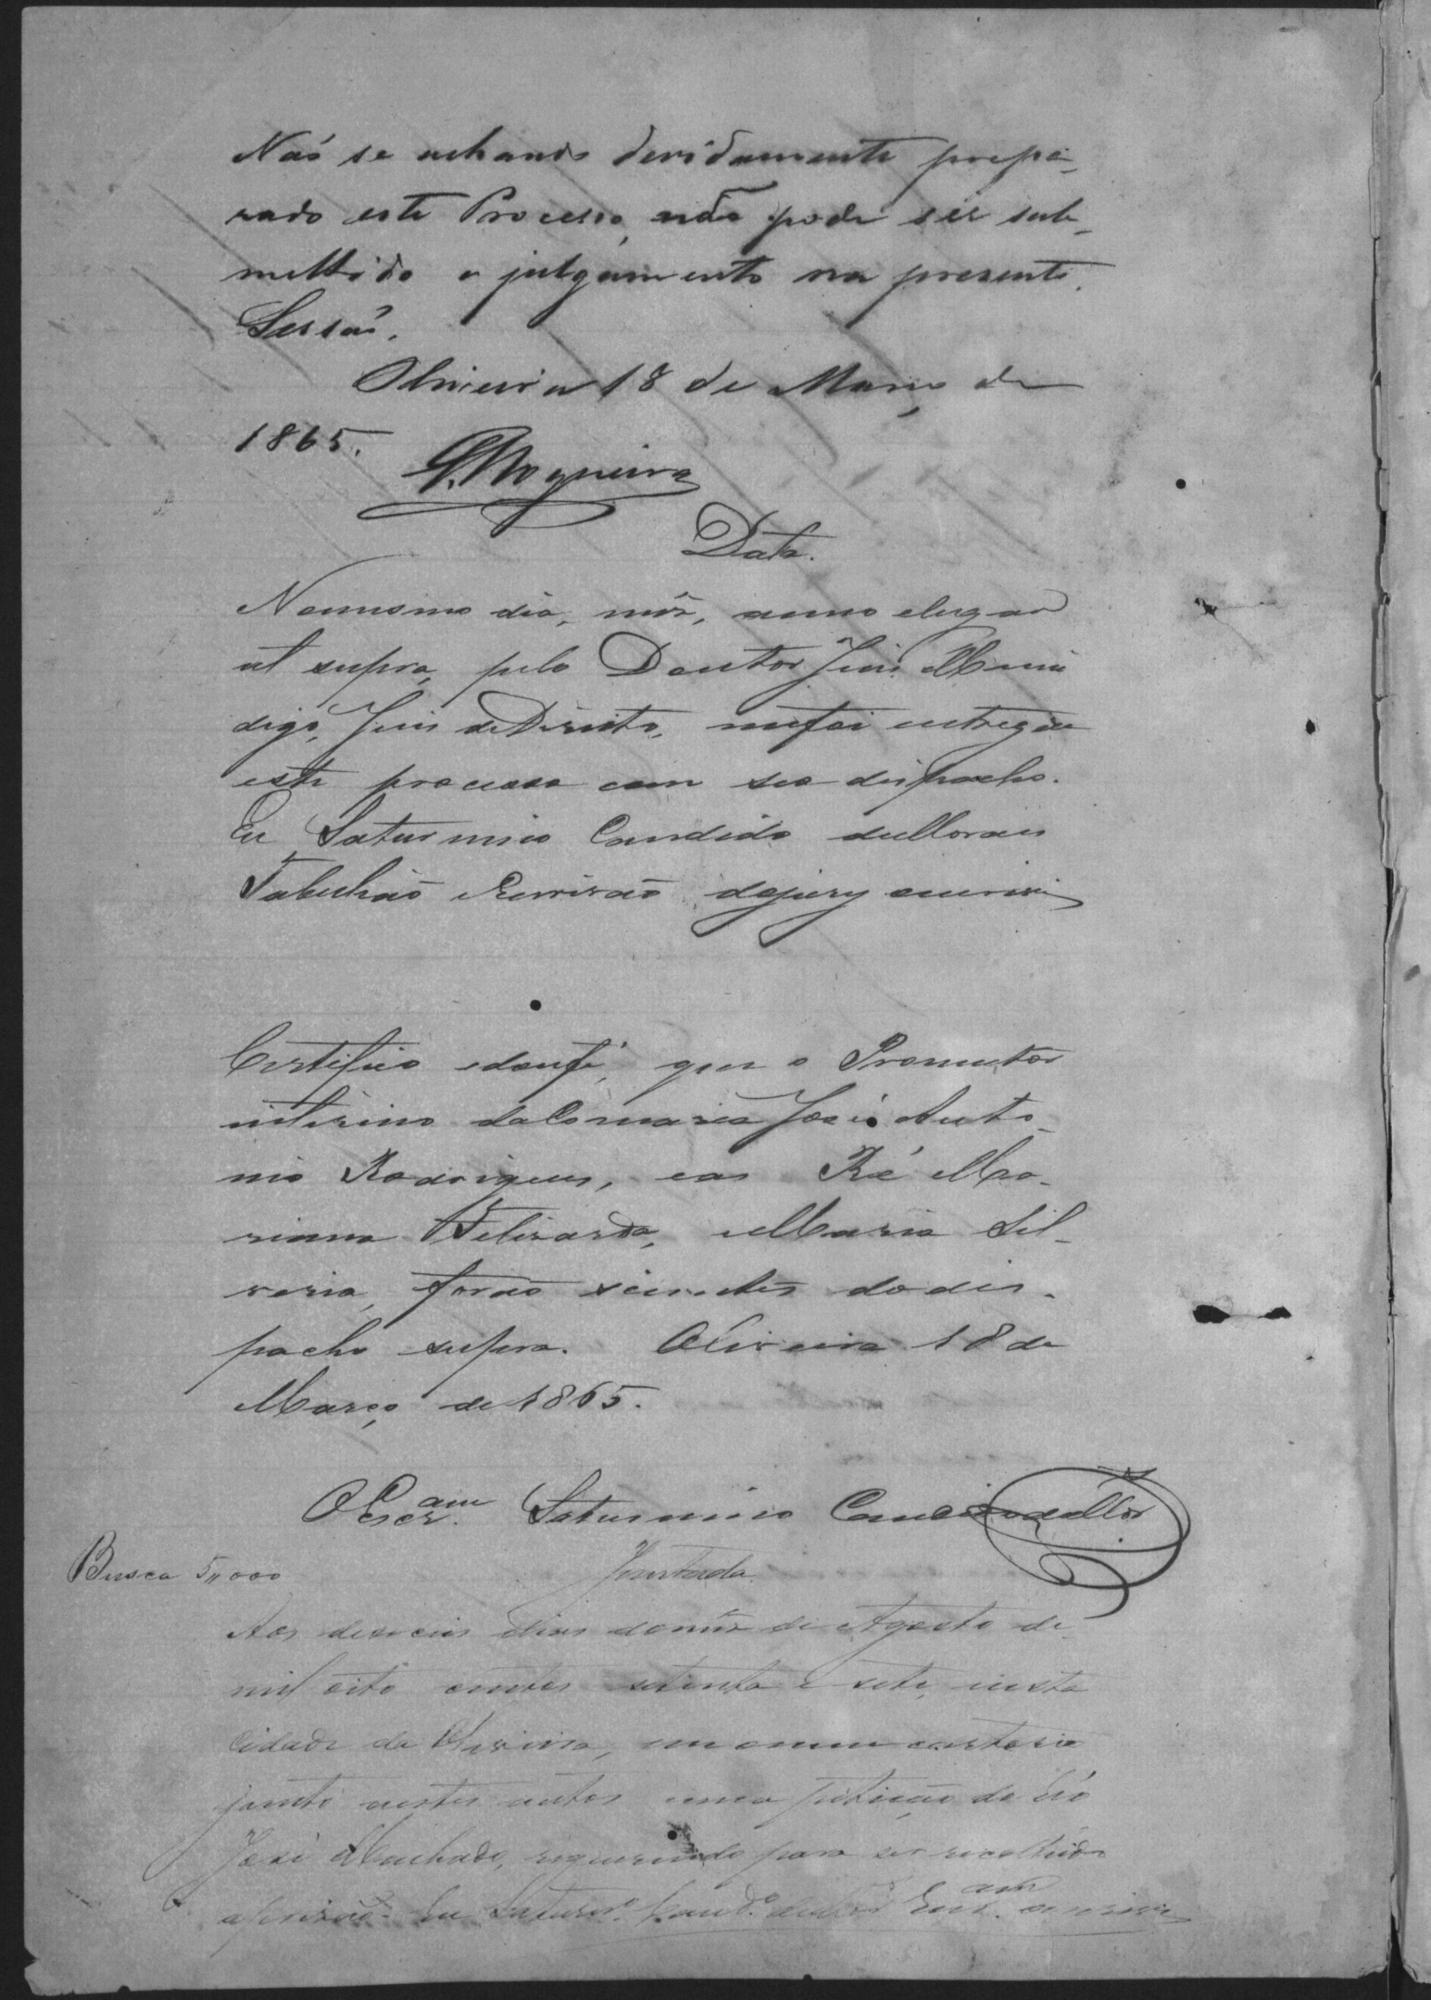 Naõ se achando devidamente prepa-
rado este Processo, não pode ser sub-
mettido a julgamento na presente
Sessaõ.
Oliveira 18 de Março de
1865.
Nogueira
Data.
Nomesmo dia, mêz, anno elugar
ut supra, pelo Doutor Juis
Juis deDireito, mefoi entregue
este processo com seo despacho.
Eu Saturnino Candido deMoraes
Tabelliaõ eEscrivaõ dojury oescrivi
Certifico edoufé, que o Promotor
interino daComarca José Anto-
nio Rodrigues, eas Ré Ma-
rianna Felizarda, eMaria Sil-
veria, foraõ scientes dodes-
pacho supra. Oliveira 18 de
Março de 1865.
O Escr.am Saturnino Candido deMor
Busca 5,,000
Juntada
Aos deseceis dias domêz de Agosto de
mil oito centos setenta e sete, nesta
Cidade da Oliveira, em omeu cartorio
junto aestes autos uma petiçaõ do Réo
José Machado, requerendo para ser recolhido
aprizaõ. Eu Saturn.o Cand.o deMor.s Escr.am oescrivi